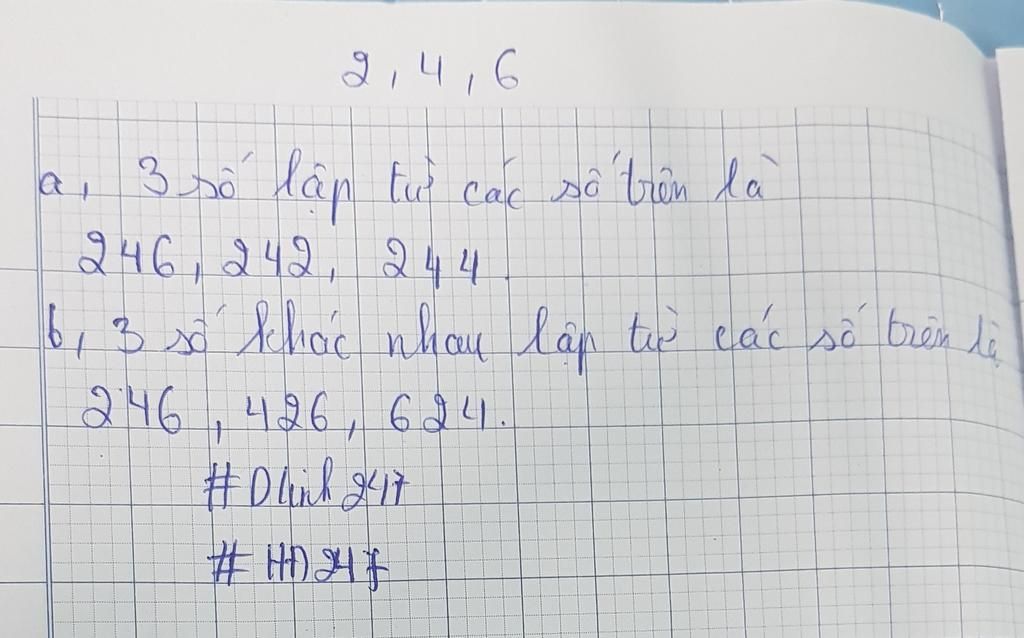 2, 4, 6
a, 3 số lập từ các số trên là
246, 242, 244.
b, 3 số khác nhau lập từ các số trên là
246, 426, 624.
#Dlinh247
#HĐ247